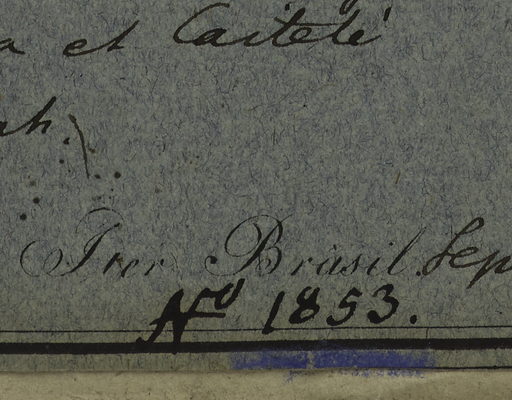 a et Caiteté
ah.
Iter Brasil. Sep
No 1853.